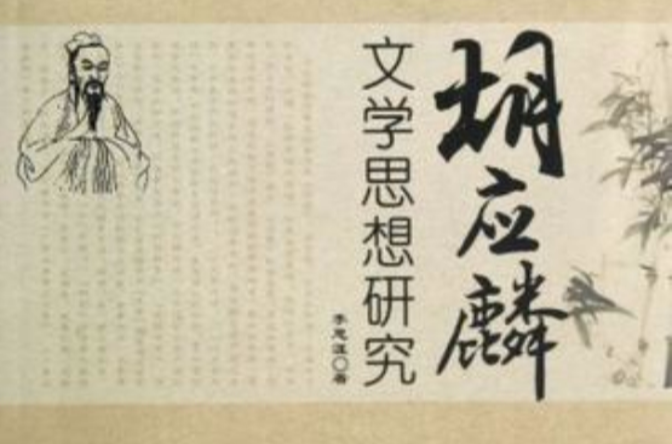 胡应麟
文学思想研究
李思涯○著